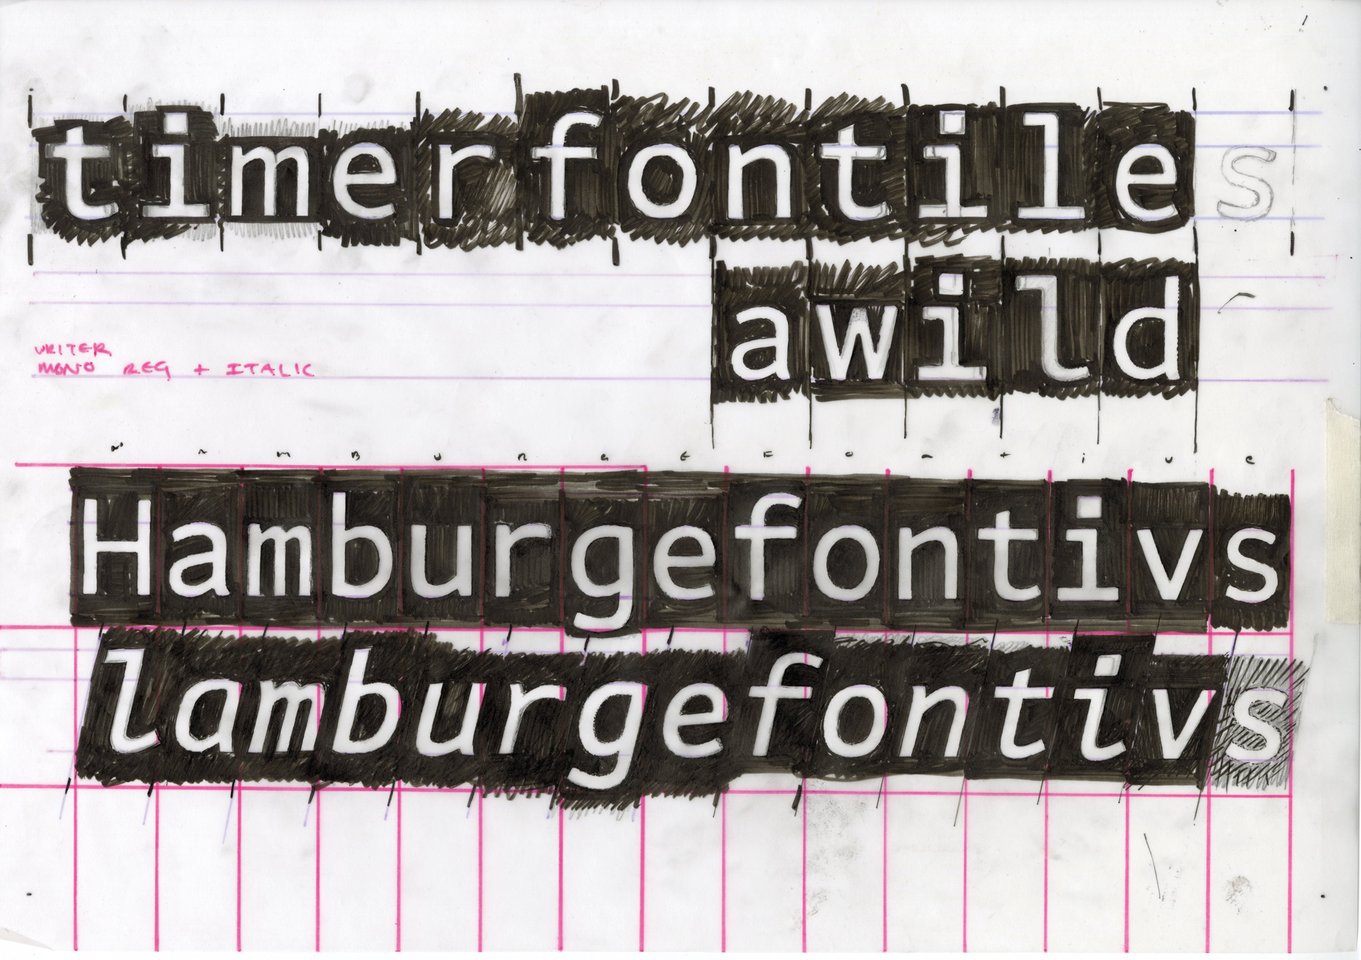 timerfontiles
awild
WRITER
MONO REG + ITALIC
Hamburgefontivs
lamburgefontivs